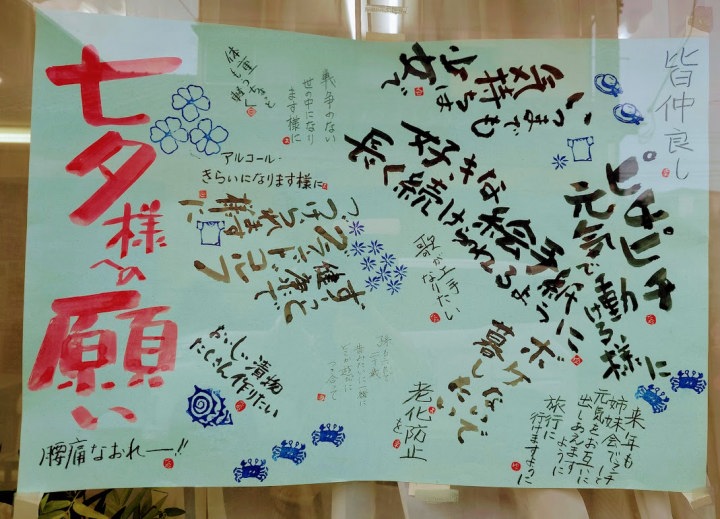 七夕様への願い
皆仲良し
ピチピチ
元気で動
ける様に
いつまでも
気持ちは
少女で
好きな絵手紙に
長く続けられるよう
戦争のない
世の中になり
ます様に
体も重
軽く
アルコール・
きらいになります様に
ずっと健康で
フラッドコフ
つづけられます
様に
歌が上手
なりたい
ボケ
ないで
暮し
老化防止
を
おいしい漬物
たくさん作りたい
来年も
姉妹会でランチ
元気をお互いに
出しあえますように
旅行に
行けますように
腰痛なおれー!!